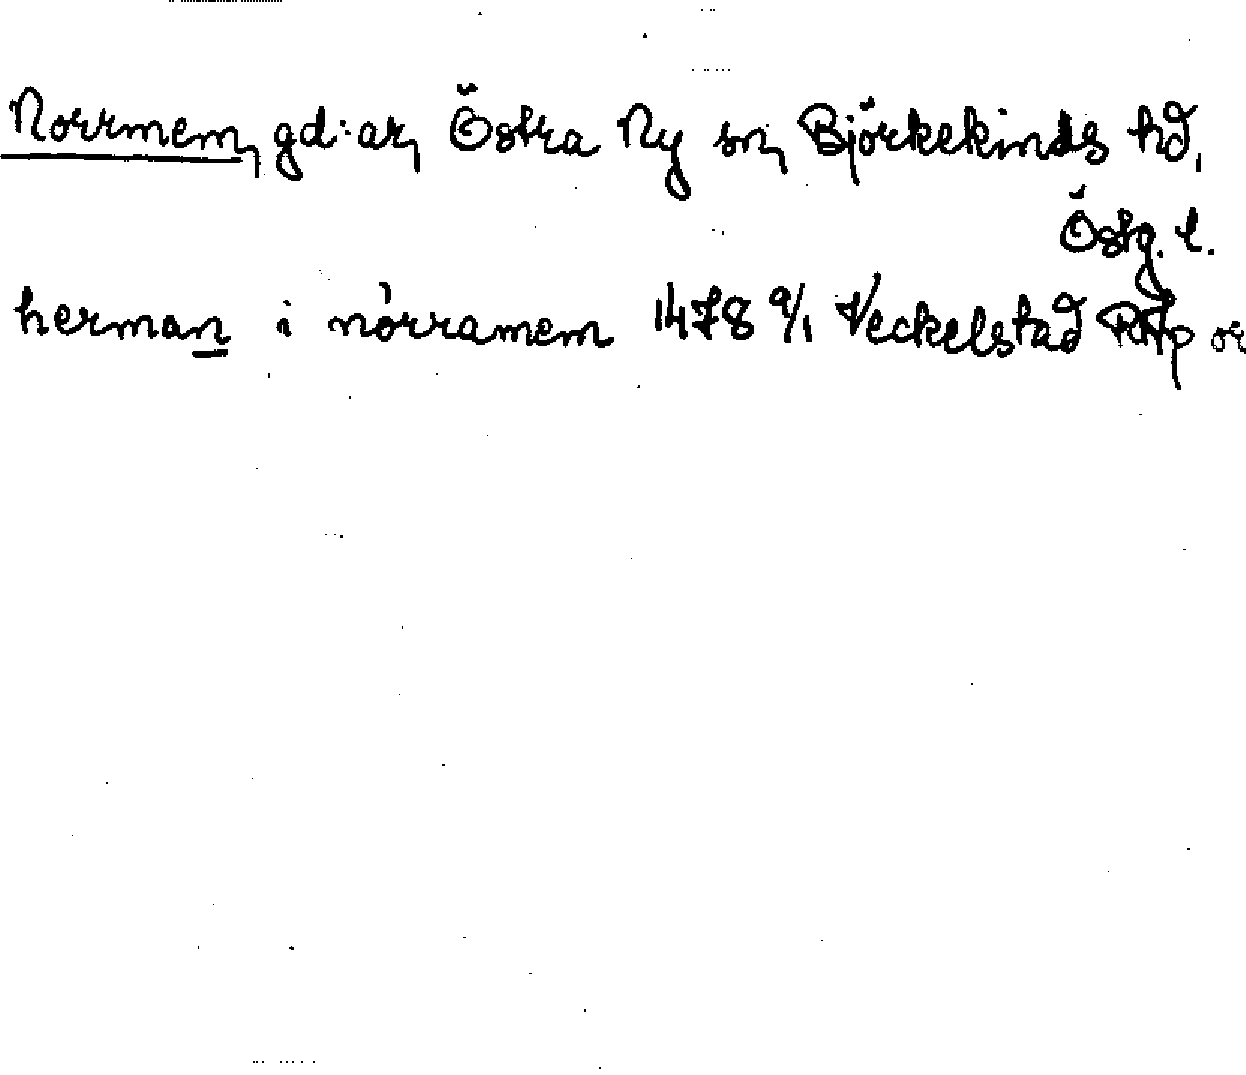 Norrmem, gd:ar, Östra Ny sn, Björkekinds hd,
Östg. l.
herman i nørramem 1478 9/1 Veckelstad RAp or